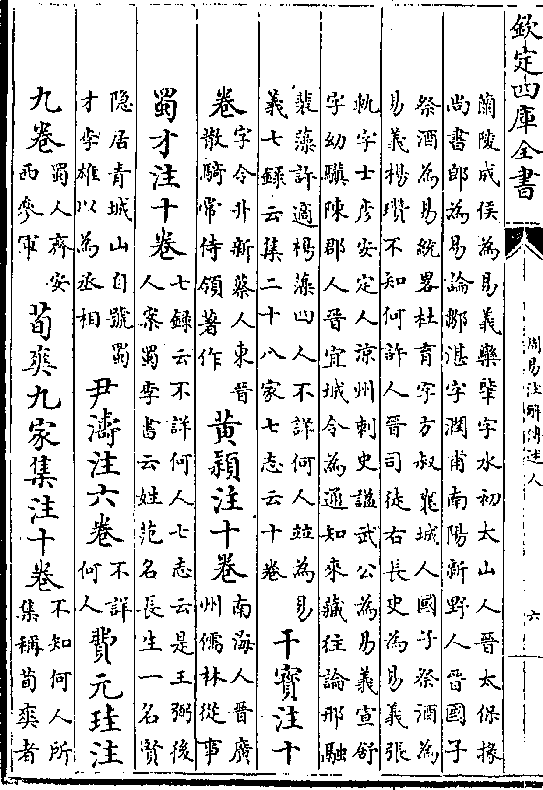 欽定四庫全書
周易注解傳述人
六
蘭陵成侯為易義欒肇字水初太山人晉太保掾
尚書郎為易論鄒湛字潤甫南陽新野人晉國子
祭酒為易統畧杜育字方叔襄城人國子祭酒為
易義楊瓚不知何許人晉司徒右長史為易義張
軌字士彥安定人涼州刺史諡武公為易義宣舒
字幼驥陳郡人晉宜城令為通知來藏往論邢融
裴藻許適楊藻四人不詳何人並為易
義七錄云集二十八家七志云十卷
干寶注十
卷
字令升新蔡人東晉
散騎常侍領著作
黃穎注十卷
南海人晉廣
州儒林從事
蜀才注十卷
七錄云不詳何人七志云是王弼後
人案蜀李書云姓范名長生一名賢
隱居青城山自號蜀
才李雄以為丞相
尹濤注六卷
不詳
何人
費元珪注
九卷
蜀人齊安
西參軍
荀爽九家集注十卷
不知何人所
集稱荀爽者